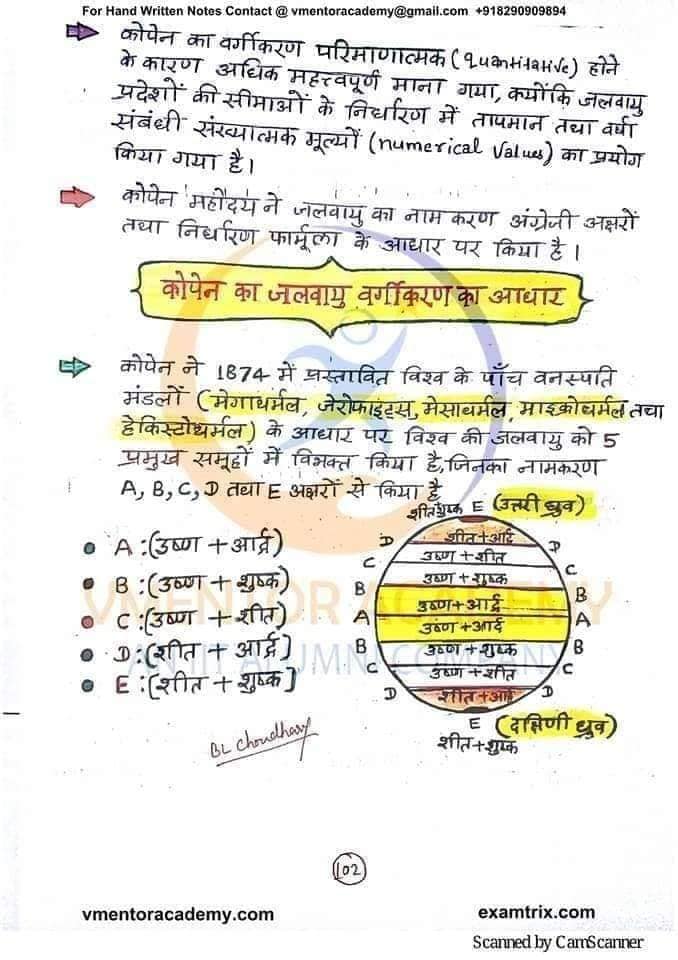 For Hand Written Notes Contact @ vmentoracademy@gmail.com +918290909894
कोपेन का वर्गीकरण परिमाणात्मक (Quantitative) होने
के कारण अधिक महत्त्वपूर्ण माना गया, क्योंकि जलवायु
प्रदेशों की सीमाओं के निर्धारण में तापमान तथा वर्षा
संबंधी संख्यात्मक मूल्यों (numerical Values) का प्रयोग
किया गया है।
कोपेन महोदय ने जलवायु का नाम करण अंग्रेजी अक्षरों
तथा निर्धारण फार्मूला के आधार पर किया है।
कोपेन का जलवायु वर्गीकरण का आधार
कोपेन ने 1874 में प्रस्तावित विश्व के पाँच वनस्पति
मंडलों (मेगाथर्मल, जेरोफाइट्स, मेसोथर्मल, माइक्रोथर्मल तथा
हेकिस्टोथर्मल) के आधार पर विश्व की जलवायु को 5
प्रमुख समूहों में विभक्त किया है, जिनका नामकरण
A, B, C, D तथा E अक्षरों से किया है
शीत+शुष्क E (उत्तरी ध्रुव)
A : (उष्ण + आर्द्र)
B : (उष्ण + शुष्क)
C : (उष्ण + शीत)
D : (शीत + आर्द्र]
E : [शीत + शुष्क]
D शीत+आर्द्र D
C उष्ण + शीत C
B उष्ण + शुष्क B
उष्ण+आर्द्र
A उष्ण+आर्द A
B उष्ण + शुष्क B
C उष्ण + शीत C
D शीत+आर्द D
E (दक्षिणी ध्रुव)
शीत+शुष्क
BL Choudhary
VMENTOR ACADEMY
AN IIT ALUMNI COMPANY
102
vmentoracademy.com
examtrix.com
Scanned by CamScanner